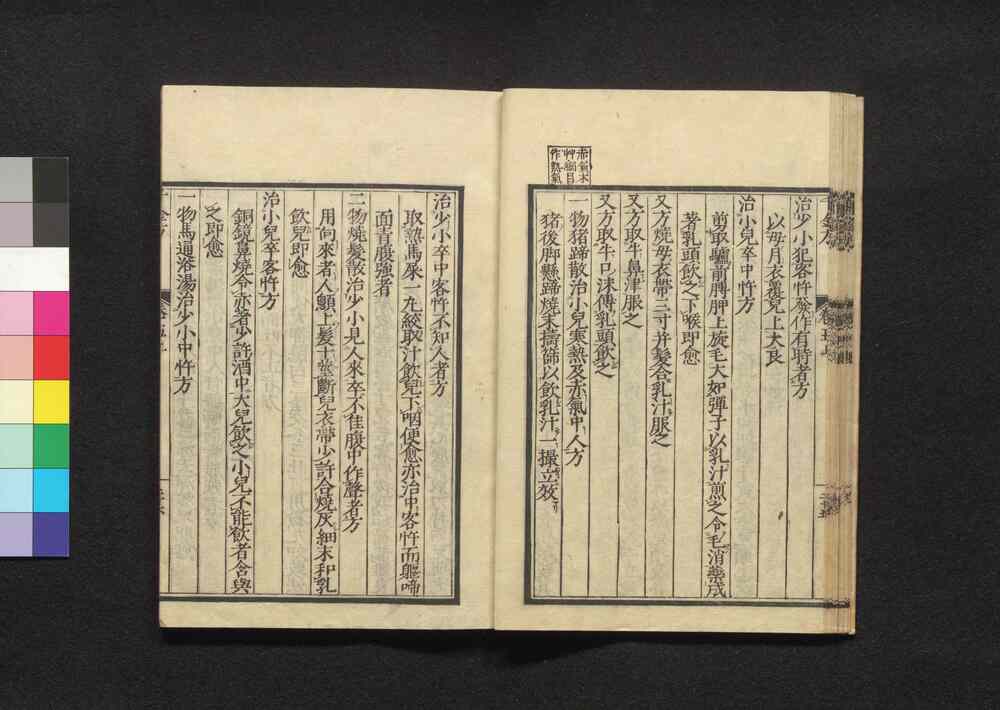 治少小犯客忤發作有時者方
以母月衣覆兒上大良
治小兒卒中忤方
剪取驢前膊胛上旋毛大如彈子以乳汁煎之令毛消藥成
著乳頭飲之下喉即愈
又方燒母衣帶三寸并髮合乳汁服之
又方取牛鼻津服之
又方取牛口沫傅乳頭飲之
一物猪蹄散治小兒寒熱及赤氣中人方
猪後脚懸蹄燒末擣篩以飲乳汁一撮立效
治少小卒中客忤不知人者方
取熱馬屎一丸絞取汁飲兒下咽便愈亦治中客忤而軀啼
面青腹強者
二物燒髮散治少小見人來卒不佳腹中作聲者方
用向來者人顖上髮十莖斷兒衣帶少許合燒灰細末和乳
飲兒即愈
治小兒卒客忤方
銅鏡鼻燒令赤著少許酒中大兒飲之小兒不能飲者含與
之即愈
一物馬通浴湯治少小中忤方